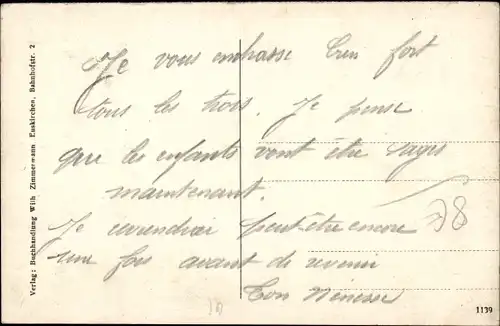 Je vous embrasse bien fort
tous les trois. Je pense
que les enfants vont être sages
maintenant.
Je reviendrai peut-être encore
une fois avant de revenir
Ton
78
Verlag: Buchhandlung Wilh Zimmermann Euskirchen, Bahnhofstr. 2
1139